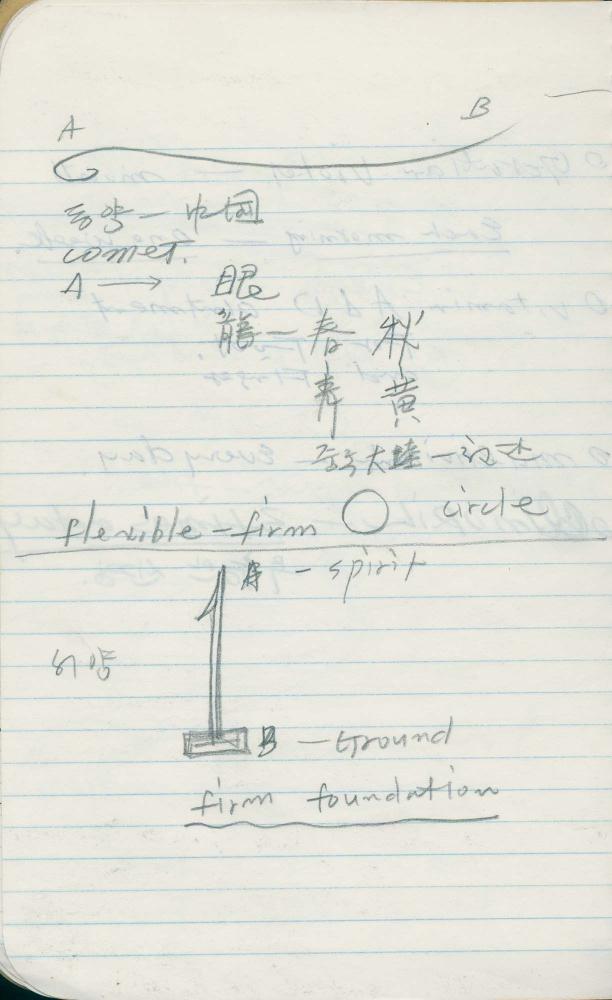 A B
동양 - 中国
comet.
A → 眼
龍 - 春 秋
青 黄
大陸 -
flexible - firm ○ circle
A - spirit
서양
B - Ground
firm foundation